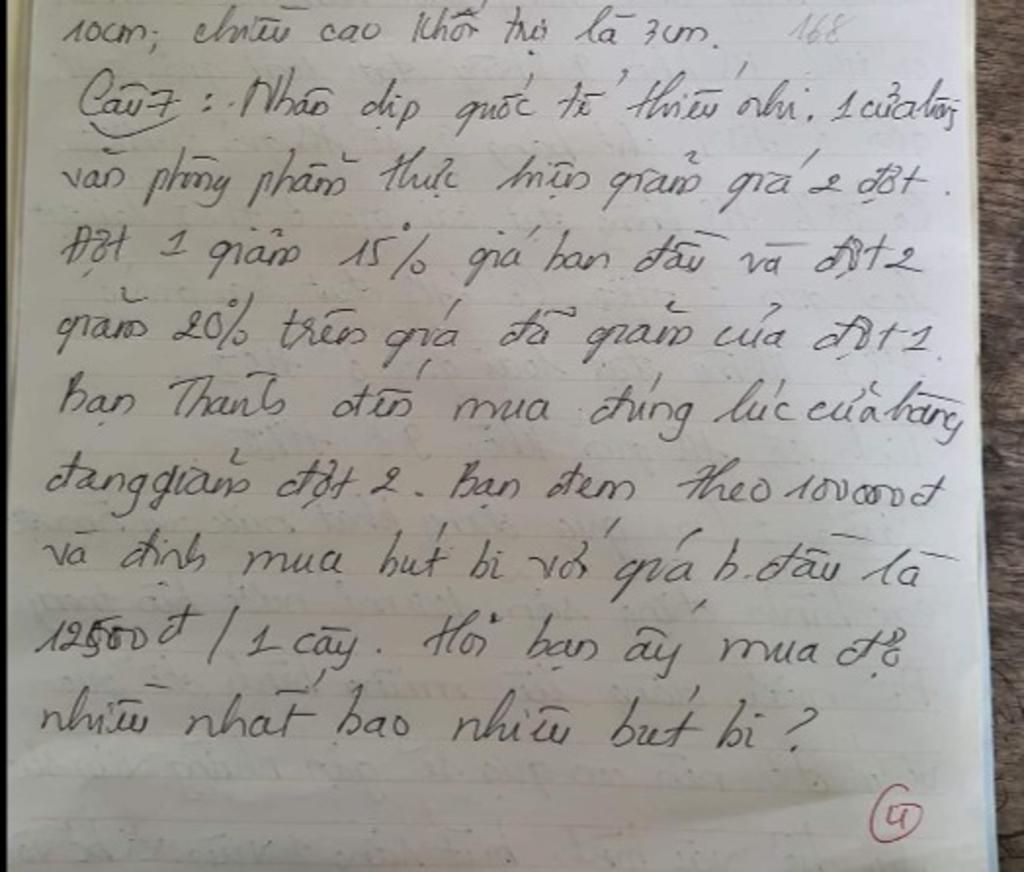 10cm; chiều cao khối trụ là 3cm. 168
Câu 7: Nhân dịp quốc tế thiếu nhi. 1 cửa hàng
văn phòng phẩm thực hiện giảm giá 2 đợt.
Đợt 1 giảm 15% giá ban đầu và đợt 2
giảm 20% trên giá đã giảm của đợt 1.
Bạn Thanh đến mua đúng lúc cửa hàng
đang giảm đợt 2. Bạn đem theo 100000đ
và định mua bút bi với giá b.đầu là
12500đ / 1 cây. Hỏi bạn ấy mua đc
nhiều nhất bao nhiêu bút bi?
4